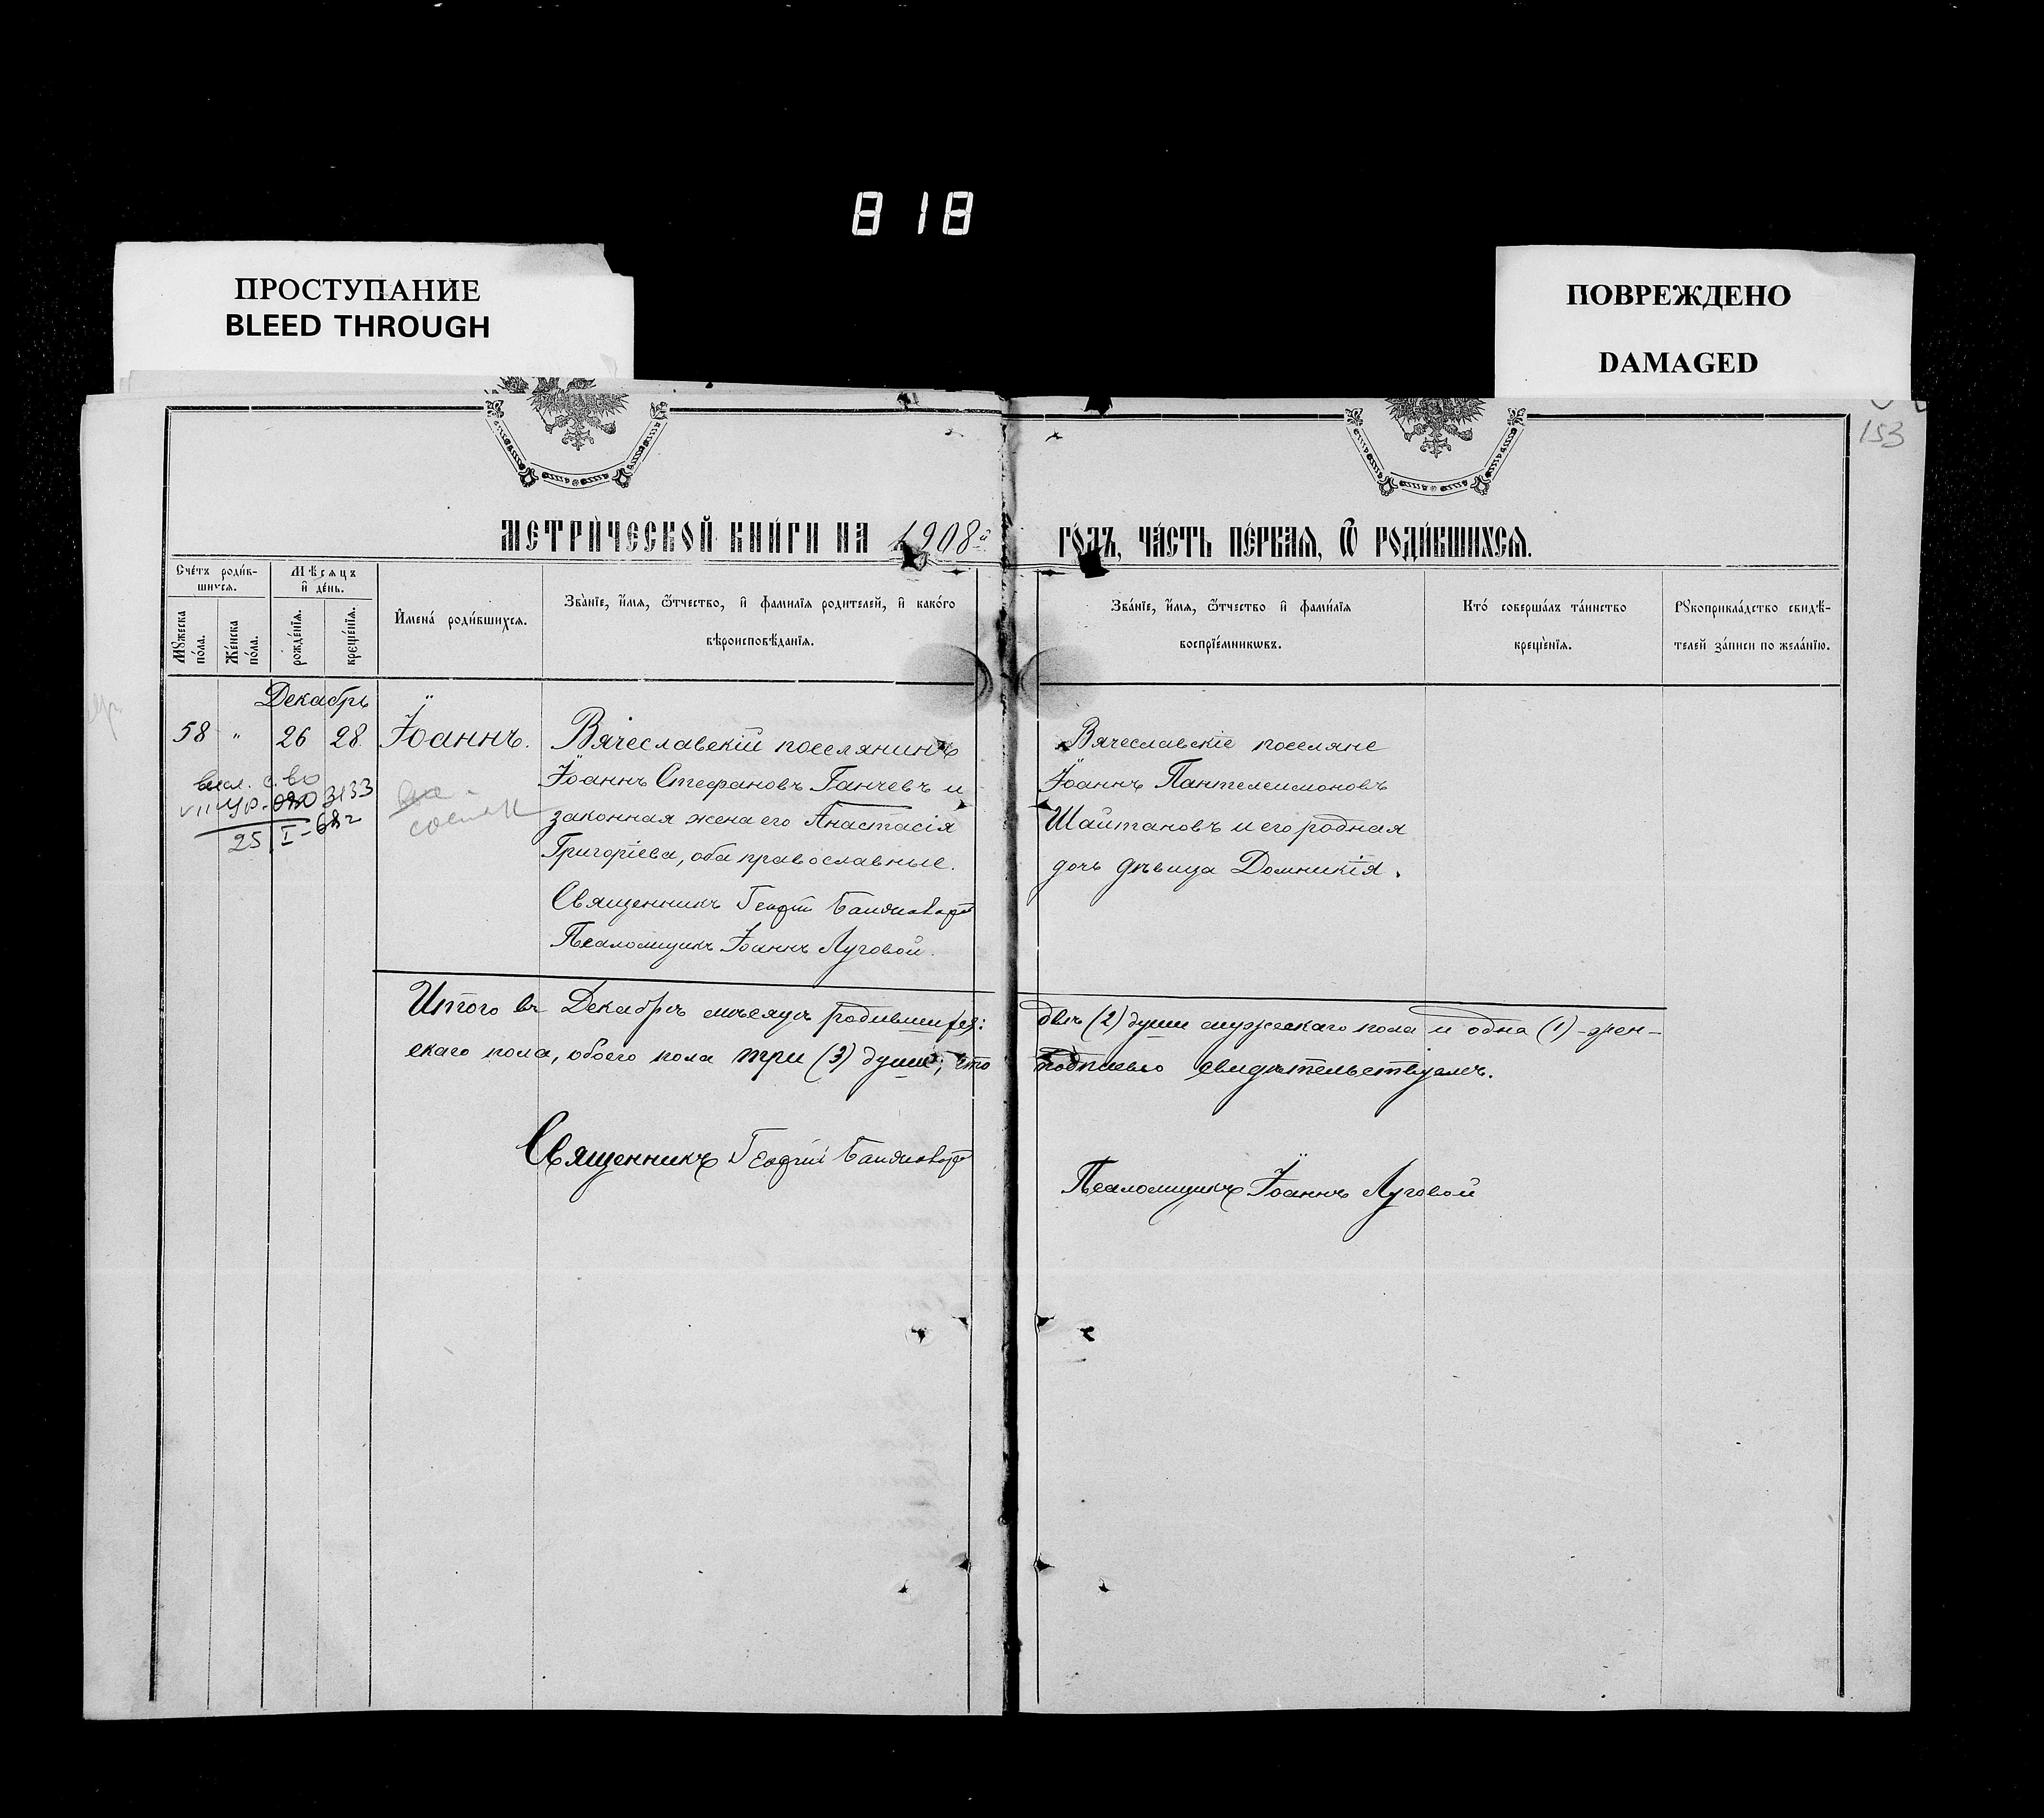 818
ПРОСТУПАНИЕ
BLEED THROUGH
ПОВРЕЖДЕНО
DAMAGED
153
МЕТРИ́ЧЕСКОЙ КНИ́ГИ НА 1908й ГО́ДЪ, ЧА́СТЬ ПЕ́РВАѦ, Ѿ РОДИ́ВШИХСѦ.
Сче́тъ роди́в-
шихсѧ.
Мꙋжеска по́ла.
Же́нска по́ла.
Мѣ́сѧцъ
и҆ де́нь.
рожде́нїѧ.
креще́нїѧ.
И҆мена̀ роди́вшихсѧ.
Зва́нїе, и҆́мѧ, ѻ҆́тчество, и҆ фами́лїѧ роди́телей, и҆ како́гѡ
вѣроисповѣ́данїѧ.
Зва́нїе, и҆́мѧ, ѻ҆́тчество и҆ фами́лїѧ
воспрїе́мникѡвъ.
Кто̀ соверша́лъ та́инство
креще́нїѧ.
Рꙋкоприкла́дство свидѣ́-
телей за́писи по жела́нїю.
Декабрь
58 " 26 28 Іоаннъ.
Вячеславскій поселянинъ
Іоаннъ Стефановъ Ганчевъ и
законная жена его Анастасія
Григоріева, оба православные.
Священникъ Георгій
Псаломщикъ Іоаннъ Луговой.
Вячеславскіе поселяне
Іоаннъ Пантелеимоновъ
Шайтановъ и его родная
дочь дѣвица Домникія.
3133
25 I-68г
Итого въ Декабрѣ мѣсяцѣ родившихся: двѣ (2) души мужескаго пола и одна (1)-жен-
скаго пола, обоего пола три (3) души; что подписью свидѣтельствуемъ.
Священникъ Георгій
Псаломщикъ Іоаннъ Луговой